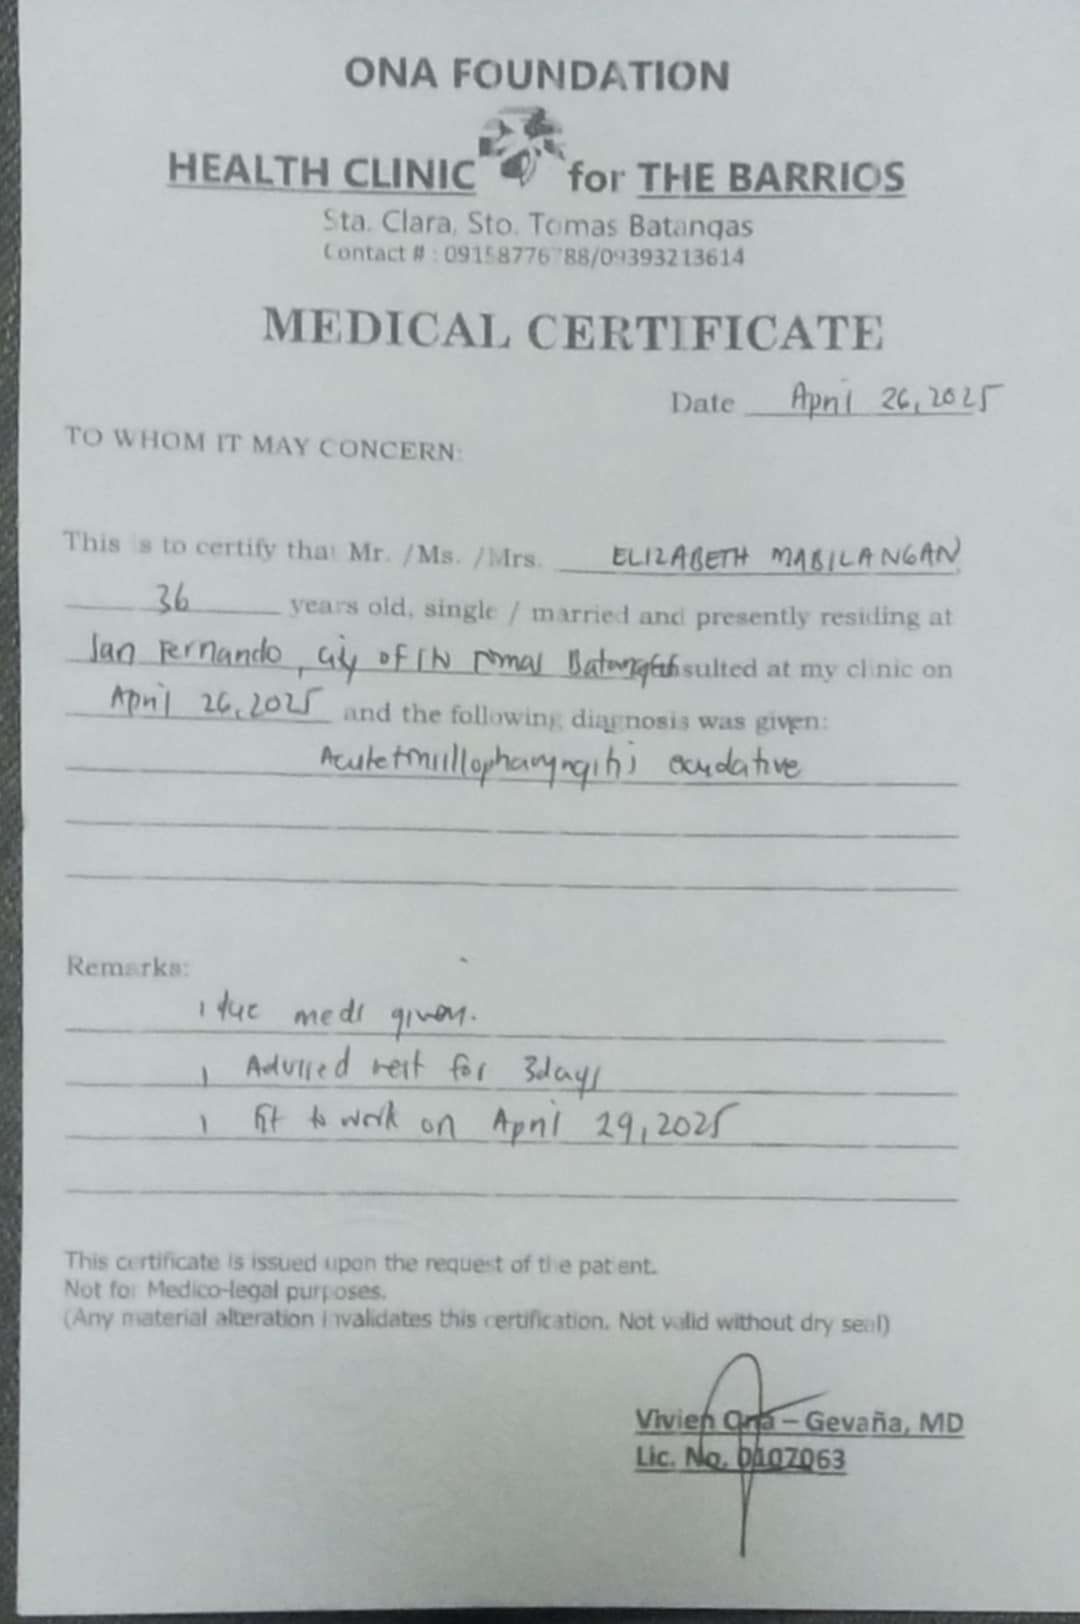 ONA FOUNDATION
HEALTH CLINIC for THE BARRIOS
Sta. Clara, Sto. Tomas Batangas
Contact # : 09158776788/09393213614
MEDICAL CERTIFICATE
Date April 26, 2025
TO WHOM IT MAY CONCERN:
This is to certify that Mr. /Ms. /Mrs. ELIZABETH MABILANGAN
36 years old, single / married and presently residing at
San Fernando, City of Sto Tomas Batangas consulted at my clinic on
April 26, 2025 and the following diagnosis was given:
Acute tonsillopharyngitis exudative
Remarks:
due meds given.
Advised rest for 3days
fit to work on April 29, 2025
This certificate is issued upon the request of the patient.
Not for Medico-legal purposes.
(Any material alteration invalidates this certification. Not valid without dry seal)
Vivien Ona – Gevaña, MD
Lic. No. 0107063